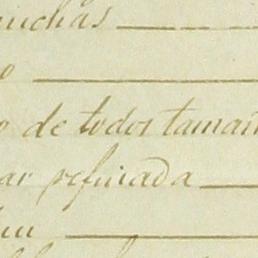 muchas
o
o de todos tamañ
ar refinada